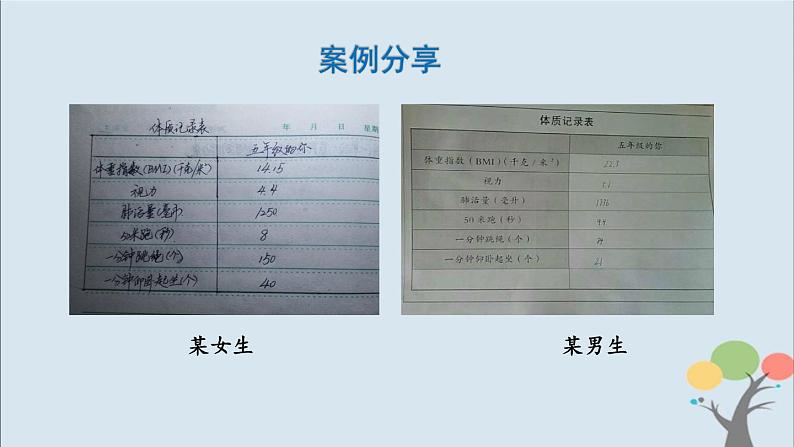 案例分享
体质记录表
年 月 日 星期
五年级的你
体重指数(BMI)(千克/米²) 14.15
视力 4.4
肺活量(毫升) 1250
50米跑(秒) 8
一分钟跳绳(个) 150
一分钟仰卧起坐(个) 40
体质记录表
五年级的你
体重指数(BMI)(千克/米²) 22.3
视力 5.1
肺活量(毫升)
50米跑(秒) 9.4
一分钟跳绳(个)
一分钟仰卧起坐(个) 21
某女生
某男生